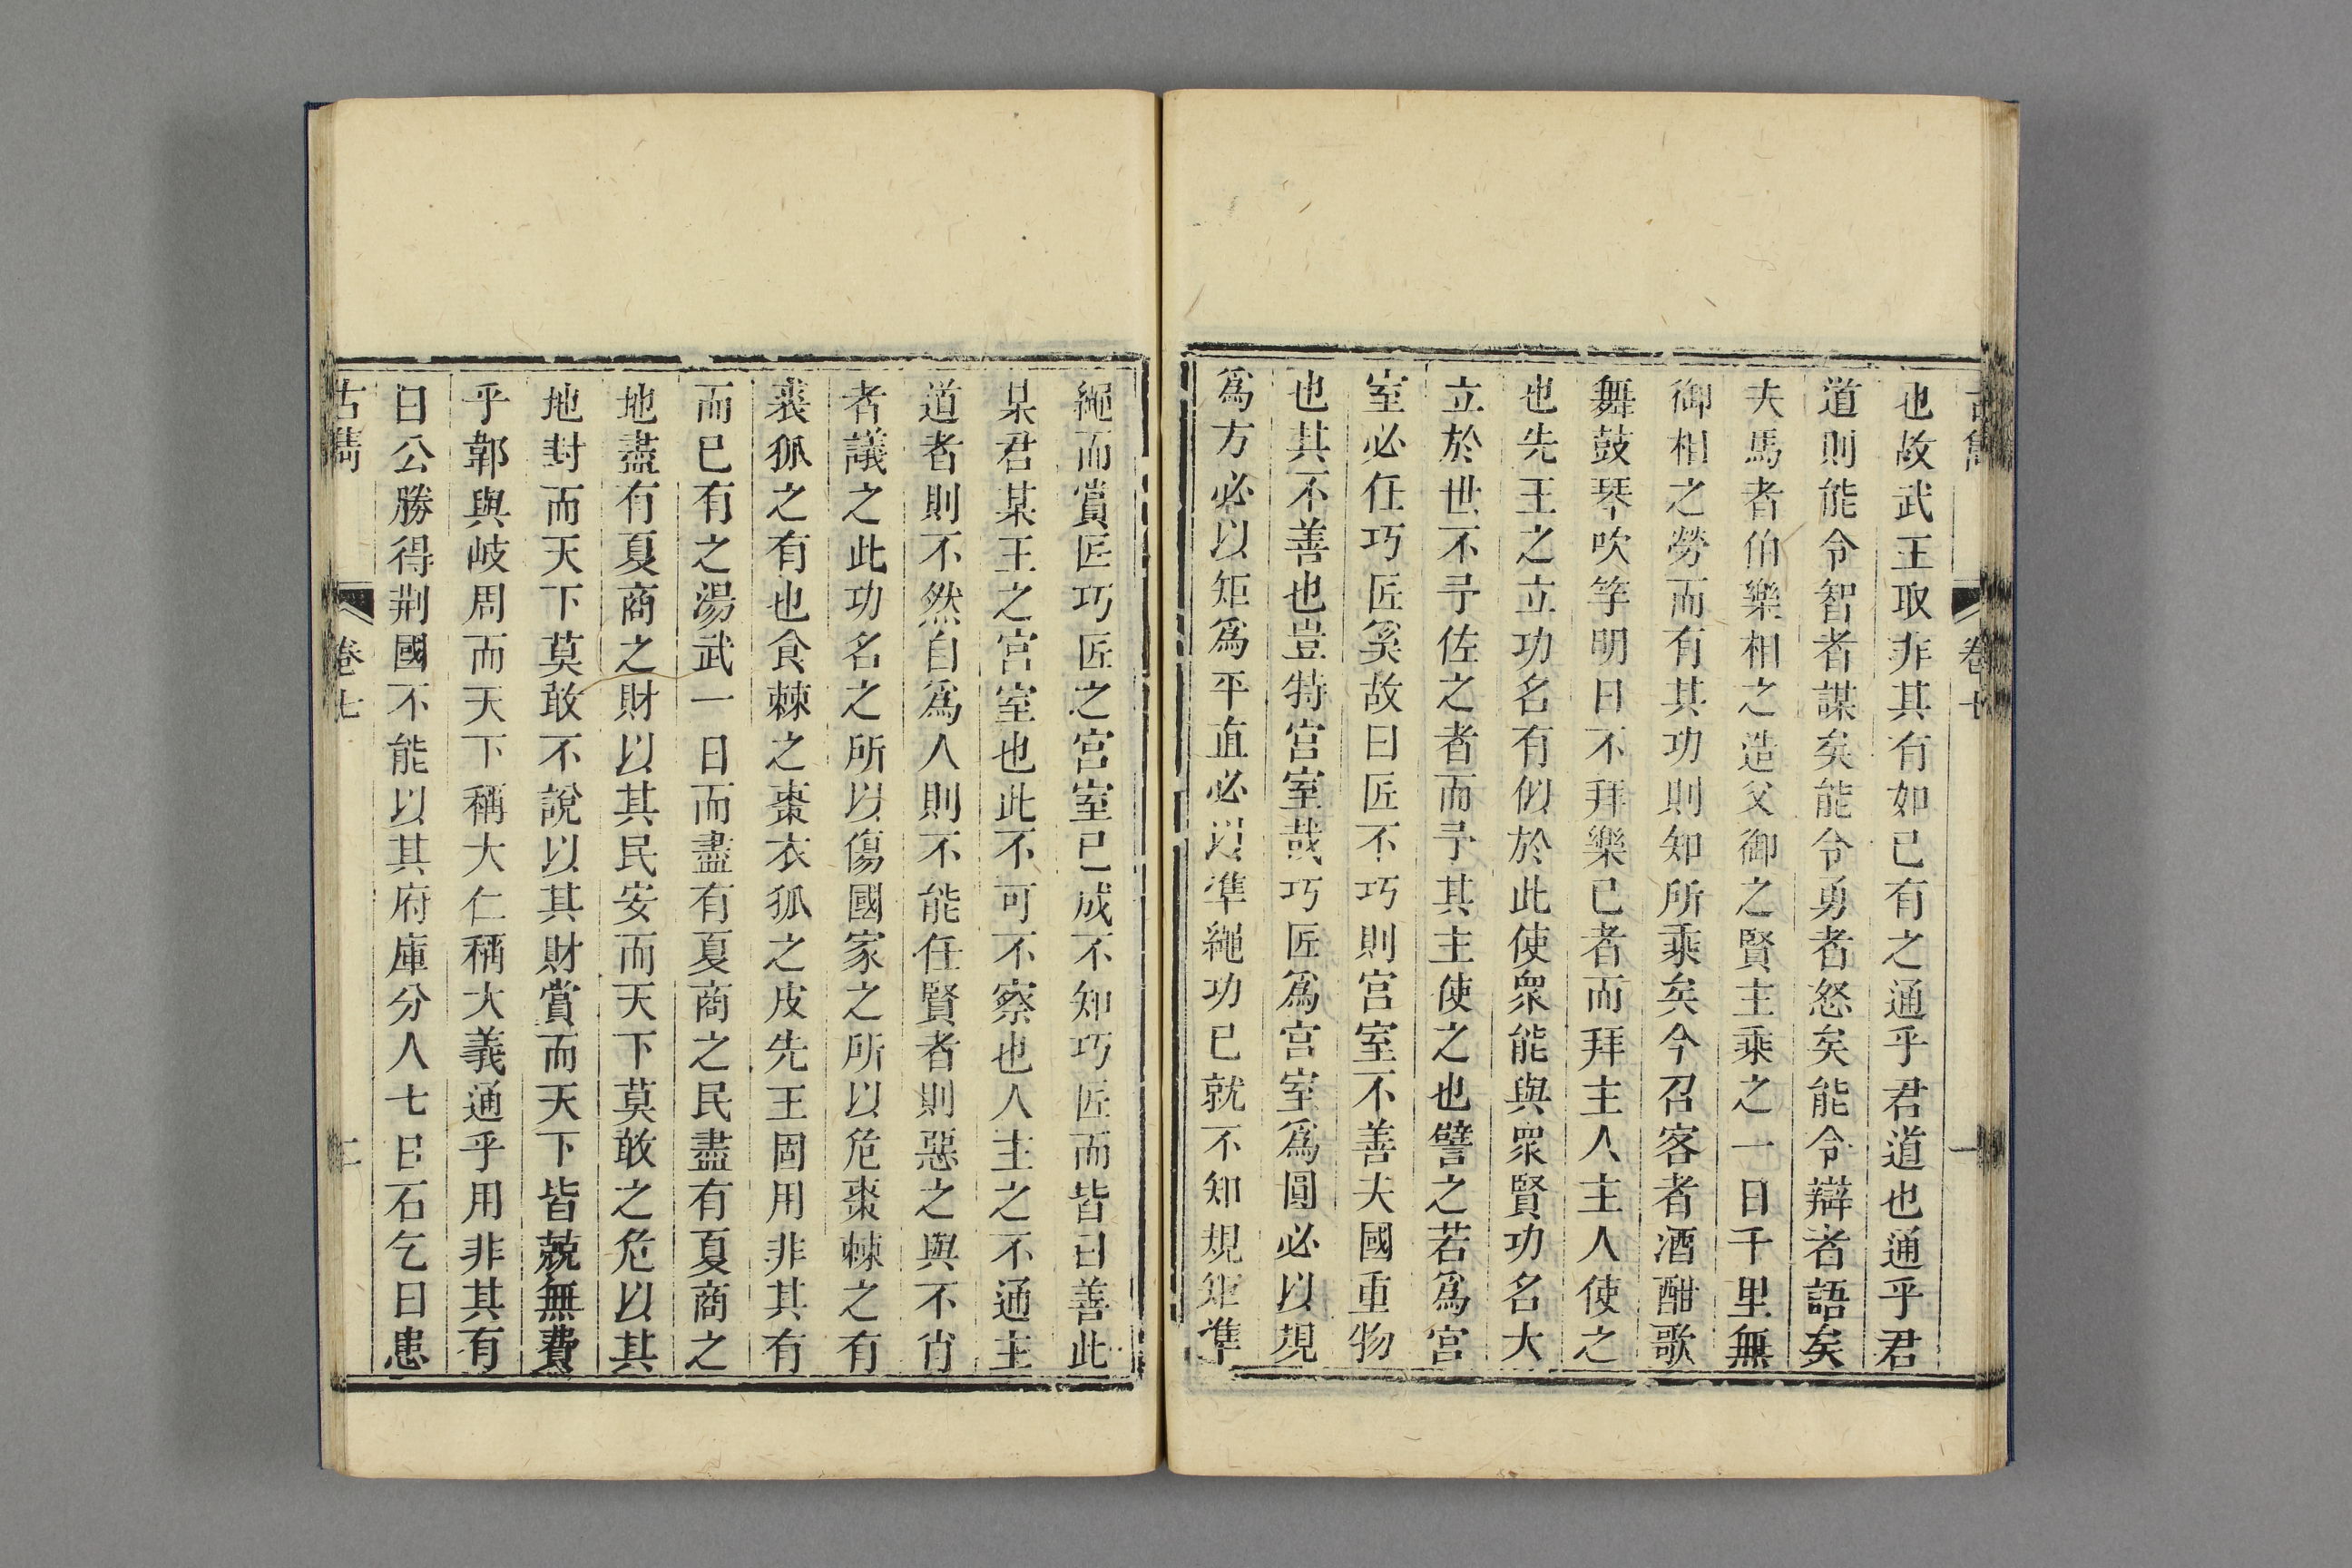 古雋 卷七 一
也故武王取非其有如已有之通乎君道也通乎君
道則能令智者謀矣能令勇者怒矣能令辯者語矣
夫馬者伯樂相之造父御之賢主乘之一日千里無
御相之勞而有其功則知所乘矣今召客者酒酣歌
舞鼓琴吹竽明日不拜樂已者而拜主人主人使之
也先王之立功名有似於此使衆能與衆賢功名大
立於世不予佐之者而予其主使之也譬之若爲宮
室必任巧匠奚故曰匠不巧則宮室不善夫國重物
也其不善也豈特宮室哉巧匠爲宮室爲圓必以規
爲方必以矩爲平直必以準繩功已就不知規矩準
繩而賞匠巧匠之宮室已成不知巧匠而皆曰善此
某君某王之宮室也此不可不察也人主之不通主
道者則不然自爲人則不能任賢者則惡之與不肖
者議之此功名之所以傷國家之所以危棗棘之有
裘狐之有也食棘之棗衣狐之皮先王固用非其有
而已有之湯武一日而盡有夏商之民盡有夏商之
地盡有夏商之財以其民安而天下莫敢之危以其
地封而天下莫敢不說以其財賞而天下皆競無費
乎鄣與岐周而天下稱大仁稱大義通乎用非其有
曰公勝得荆國不能以其府庫分人七日石乞曰患
古雋 卷七 二